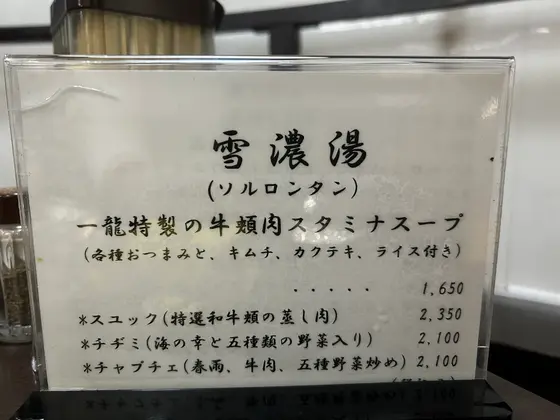 雪濃湯
(ソルロンタン)
一龍特製の牛頬肉スタミナスープ
(各種おつまみと、キムチ、カクテキ、ライス付き)
・・・・・ 1,650
*スユック(特選和牛頬の蒸し肉) 2,350
*チヂミ(海の幸と五種類の野菜入り) 2,100
*チャプチェ(春雨、牛肉、五種野菜炒め) 2,100